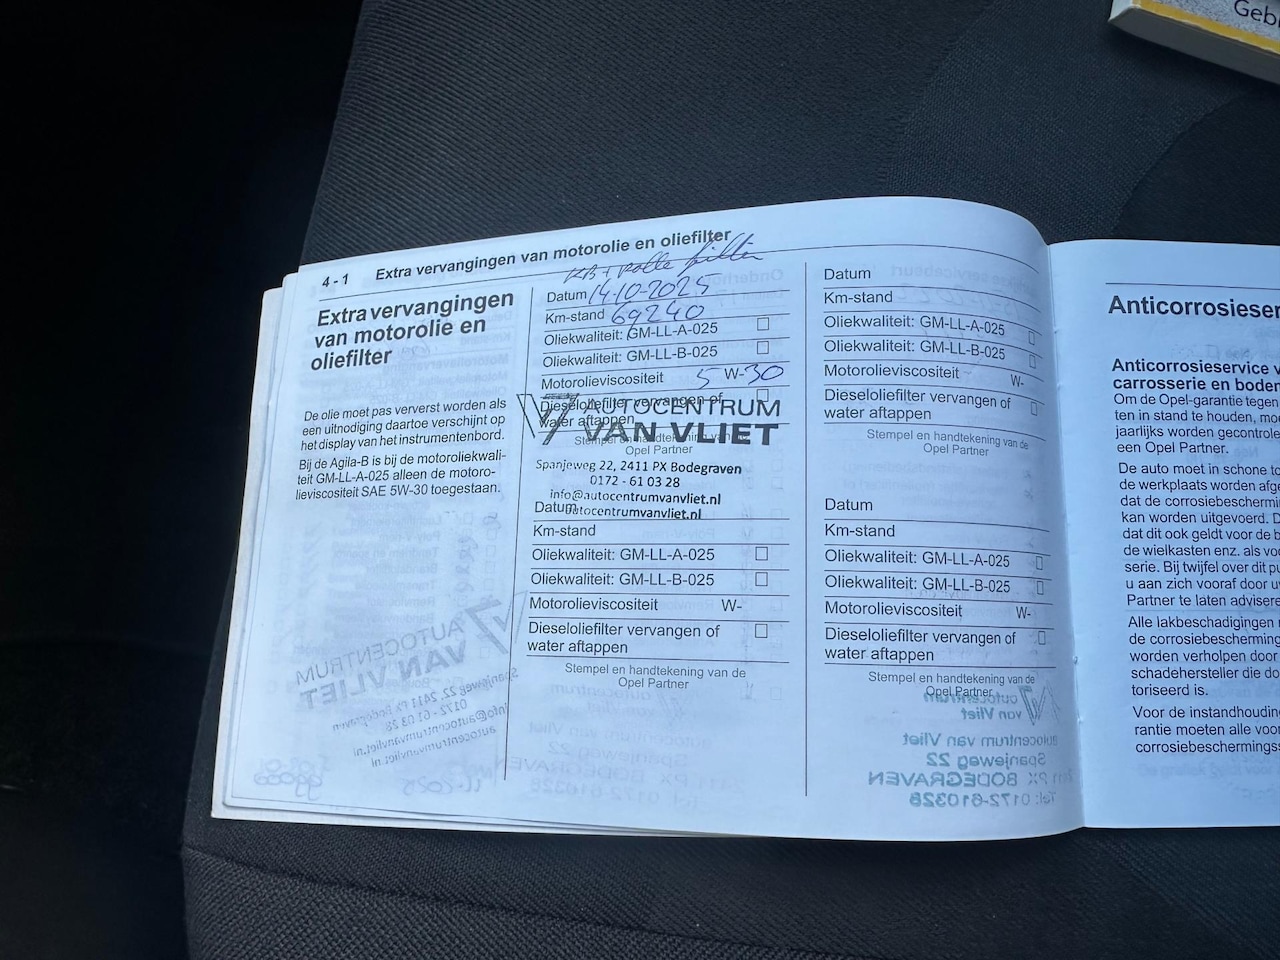 Geb
4 - 1 Extra vervangingen van motorolie en oliefilter
Extra vervangingen
van motorolie en
oliefilter
De olie moet pas ververst worden als
een uitnodiging daartoe verschijnt op
het display van het instrumentenbord.
Bij de Agila-B is bij de motoroliekwali-
teit GM-LL-A-025 alleen de motoro-
lieviscositeit SAE 5W-30 toegestaan.
filter
Datum 14-10-2025
Km-stand 69240
Oliekwaliteit: GM-LL-A-025
Oliekwaliteit: GM-LL-B-025
Motorolieviscositeit 5 W-30
Dieseloliefilter vervangen of
water aftappen
AUTOCENTRUM
VAN VLIET
Stempel en handtekening van de
Opel Partner
Spanjeweg 22, 2411 PX Bodegraven
0172 - 61 03 28
info@autocentrumvanvliet.nl
autocentrumvanvliet.nl
Datum
Km-stand
Oliekwaliteit: GM-LL-A-025
Oliekwaliteit: GM-LL-B-025
Motorolieviscositeit W-
Dieseloliefilter vervangen of
water aftappen
Stempel en handtekening van de
Opel Partner
Datum
Km-stand
Oliekwaliteit: GM-LL-A-025
Oliekwaliteit: GM-LL-B-025
Motorolieviscositeit W-
Dieseloliefilter vervangen of
water aftappen
Stempel en handtekening van de
Opel Partner
Datum
Km-stand
Oliekwaliteit: GM-LL-A-025
Oliekwaliteit: GM-LL-B-025
Motorolieviscositeit W-
Dieseloliefilter vervangen of
water aftappen
Stempel en handtekening van de
Opel Partner
Anticorrosieser
Anticorrosieservice v
carrosserie en bodem
Om de Opel-garantie tegen
ten in stand te houden, moe
jaarlijks worden gecontrole
een Opel Partner.
De auto moet in schone to
de werkplaats worden afge
dat de corrosiebeschermin
kan worden uitgevoerd. D
dat dit ook geldt voor de b
de wielkasten enz. als voo
serie. Bij twijfel over dit pu
u aan zich vooraf door uw
Partner te laten advisere
Alle lakbeschadigingen
de corrosiebescherming
worden verholpen door
schadehersteller die do
toriseerd is.
Voor de instandhouding
rantie moeten alle voor
corrosiebeschermingss